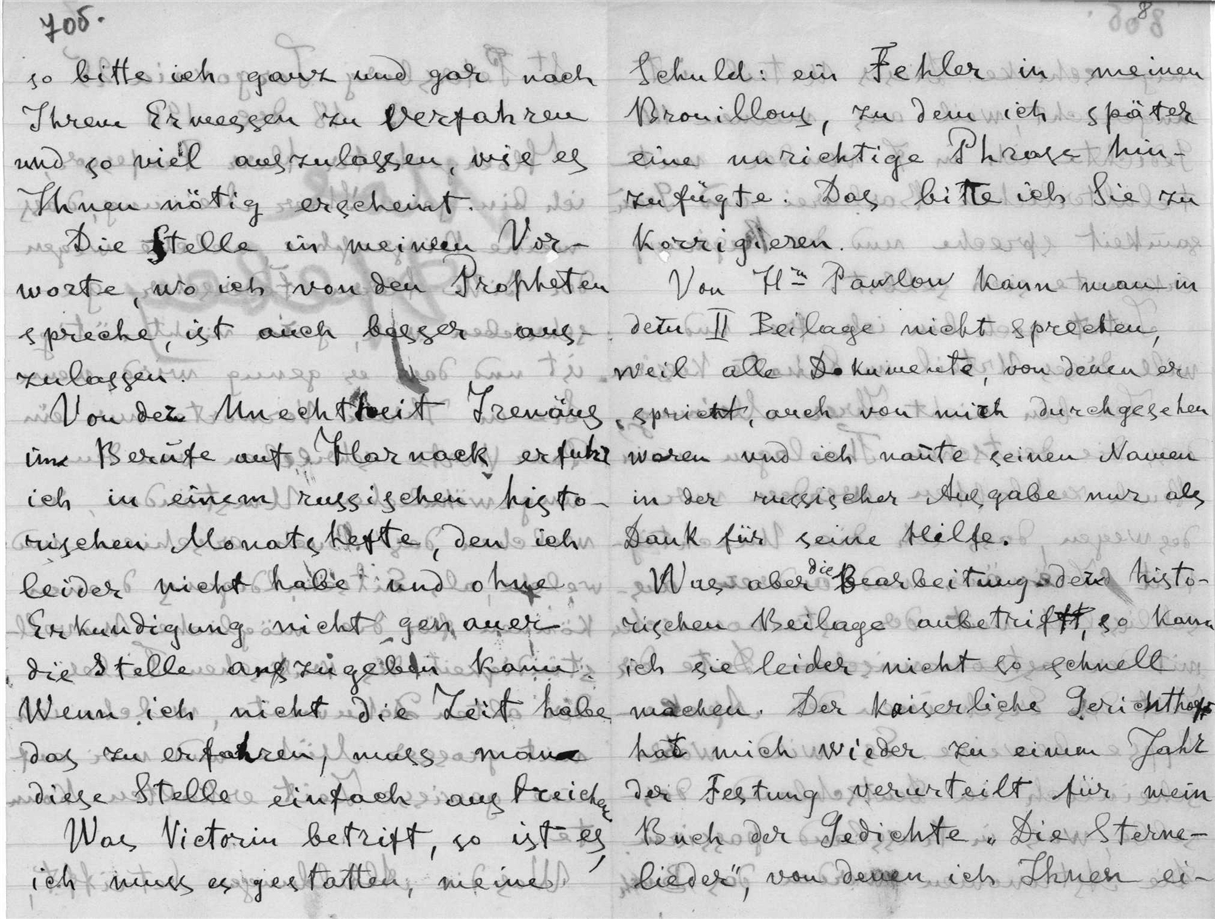 7об.
so bitte ich ganz und gar nach
Ihrem Ermessen zu verfahren
und so viel auszulassen, wie es
Ihnen nötig erscheint.
Die Stelle in meinem Vor-
worte, wo ich von den Propheten
spreche, ist auch besser aus-
zulassen.
Von der Unechtheit Irenäus
im Berufe auf Harnack erfuhr
ich in einem russischen histo-
rischen Monatshefte, den ich
leider nicht habe und ohne
Erkundigung nicht genauer
die Stelle anzugeben kann.
Wenn ich nicht die Zeit habe
das zu erfahren, muss man
diese Stelle einfach austreichen
Was Victorin betrift, so ist es,
ich muss es gestatten, meine
8
Schuld: ein Fehler in meinen
Brouillons, zu dem ich später
eine unrichtige Phrase hin-
zufügte. Das bitte ich Sie zu
korrigieren.
Von Hrn Pawlow kann man in
dem II Beilage nicht sprechen,
weil alle Dokumente, von denen er
spricht, auch von mich durchgesehen
waren und ich nannte seinen Namen
in der russischer Ausgabe nur als
Dank für seine Hilfe.
Was aber die Bearbeitung der histo-
rischen Beilage anbetrifft, so kann
ich sie leider nicht so schnell
machen. Der kaiserliche Gerichthoff
hat mich wieder zu einem Jahr
der Festung verurteilt für mein
Buch der Gedichte „Die Sterne-
lieder", von denen ich Ihnen ei-